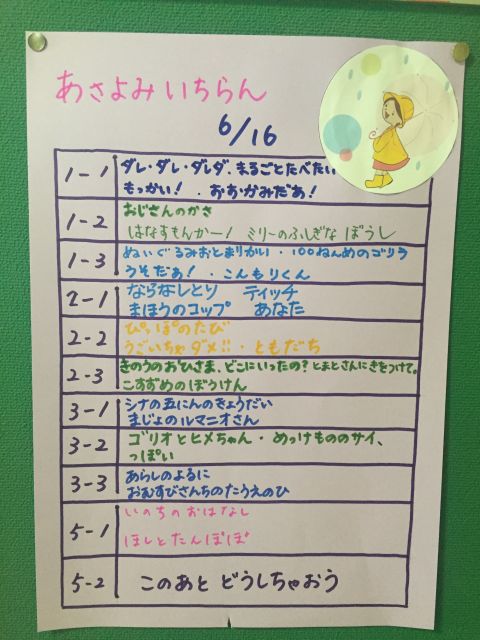 あさよみいちらん
6/16
1-1 ダレ・ダレ・ダレダ、まるごとたべたい
もっかい!・おおかみだあ!
1-2 おじさんのかさ
はなすもんかー! ミリーのふしぎなぼうし
1-3 ぬいぐるみおとまりかい・100ねんめのゴリラ
うそだぁ!・こんもりくん
2-1 ならなしとり ティッチ
まほうのコップ あなた
2-2 ぴっぽのたび
うごいちゃダメ!!・ともだち
2-3 きのうのおひさま、どこにいったの?とまとさんにきをつけて。
こすずめのぼうけん
3-1 シナの五にんのきょうだい
まじょのルマニオさん
3-2 ゴリオとヒメちゃん・めっけもののサイ、
っぽい
3-3 あらしのよるに
おむすびさんちのたうえのひ
5-1 いのちのおはなし
ほしとたんぽぽ
5-2 このあと どうしちゃおう